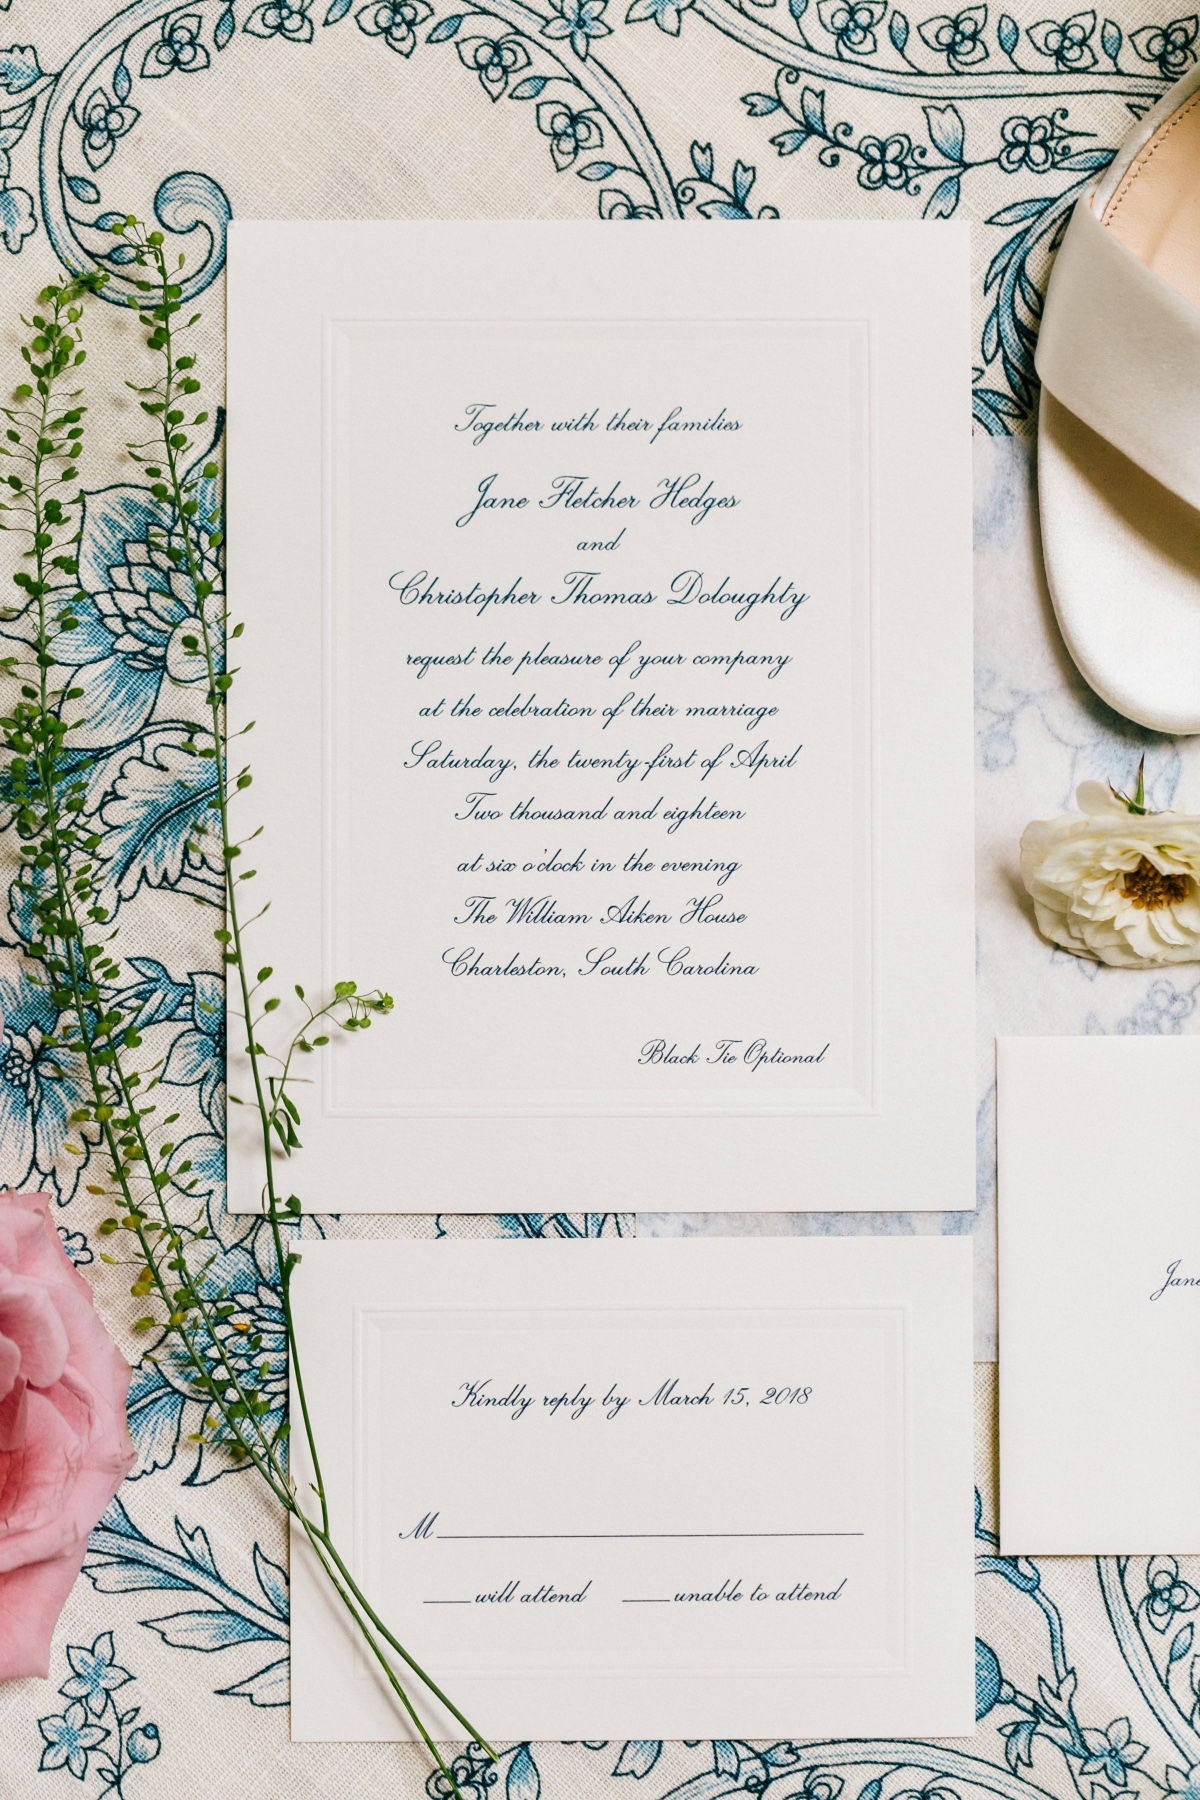 Together with their families
Jane Fletcher Hedges
and
Christopher Thomas Doloughty
request the pleasure of your company
at the celebration of their marriage
Saturday, the twenty-first of April
Two thousand and eighteen
at six o'clock in the evening
The William Aiken House
Charleston, South Carolina
Black Tie Optional
Kindly reply by March 15, 2018
M
will attend unable to attend
Jane